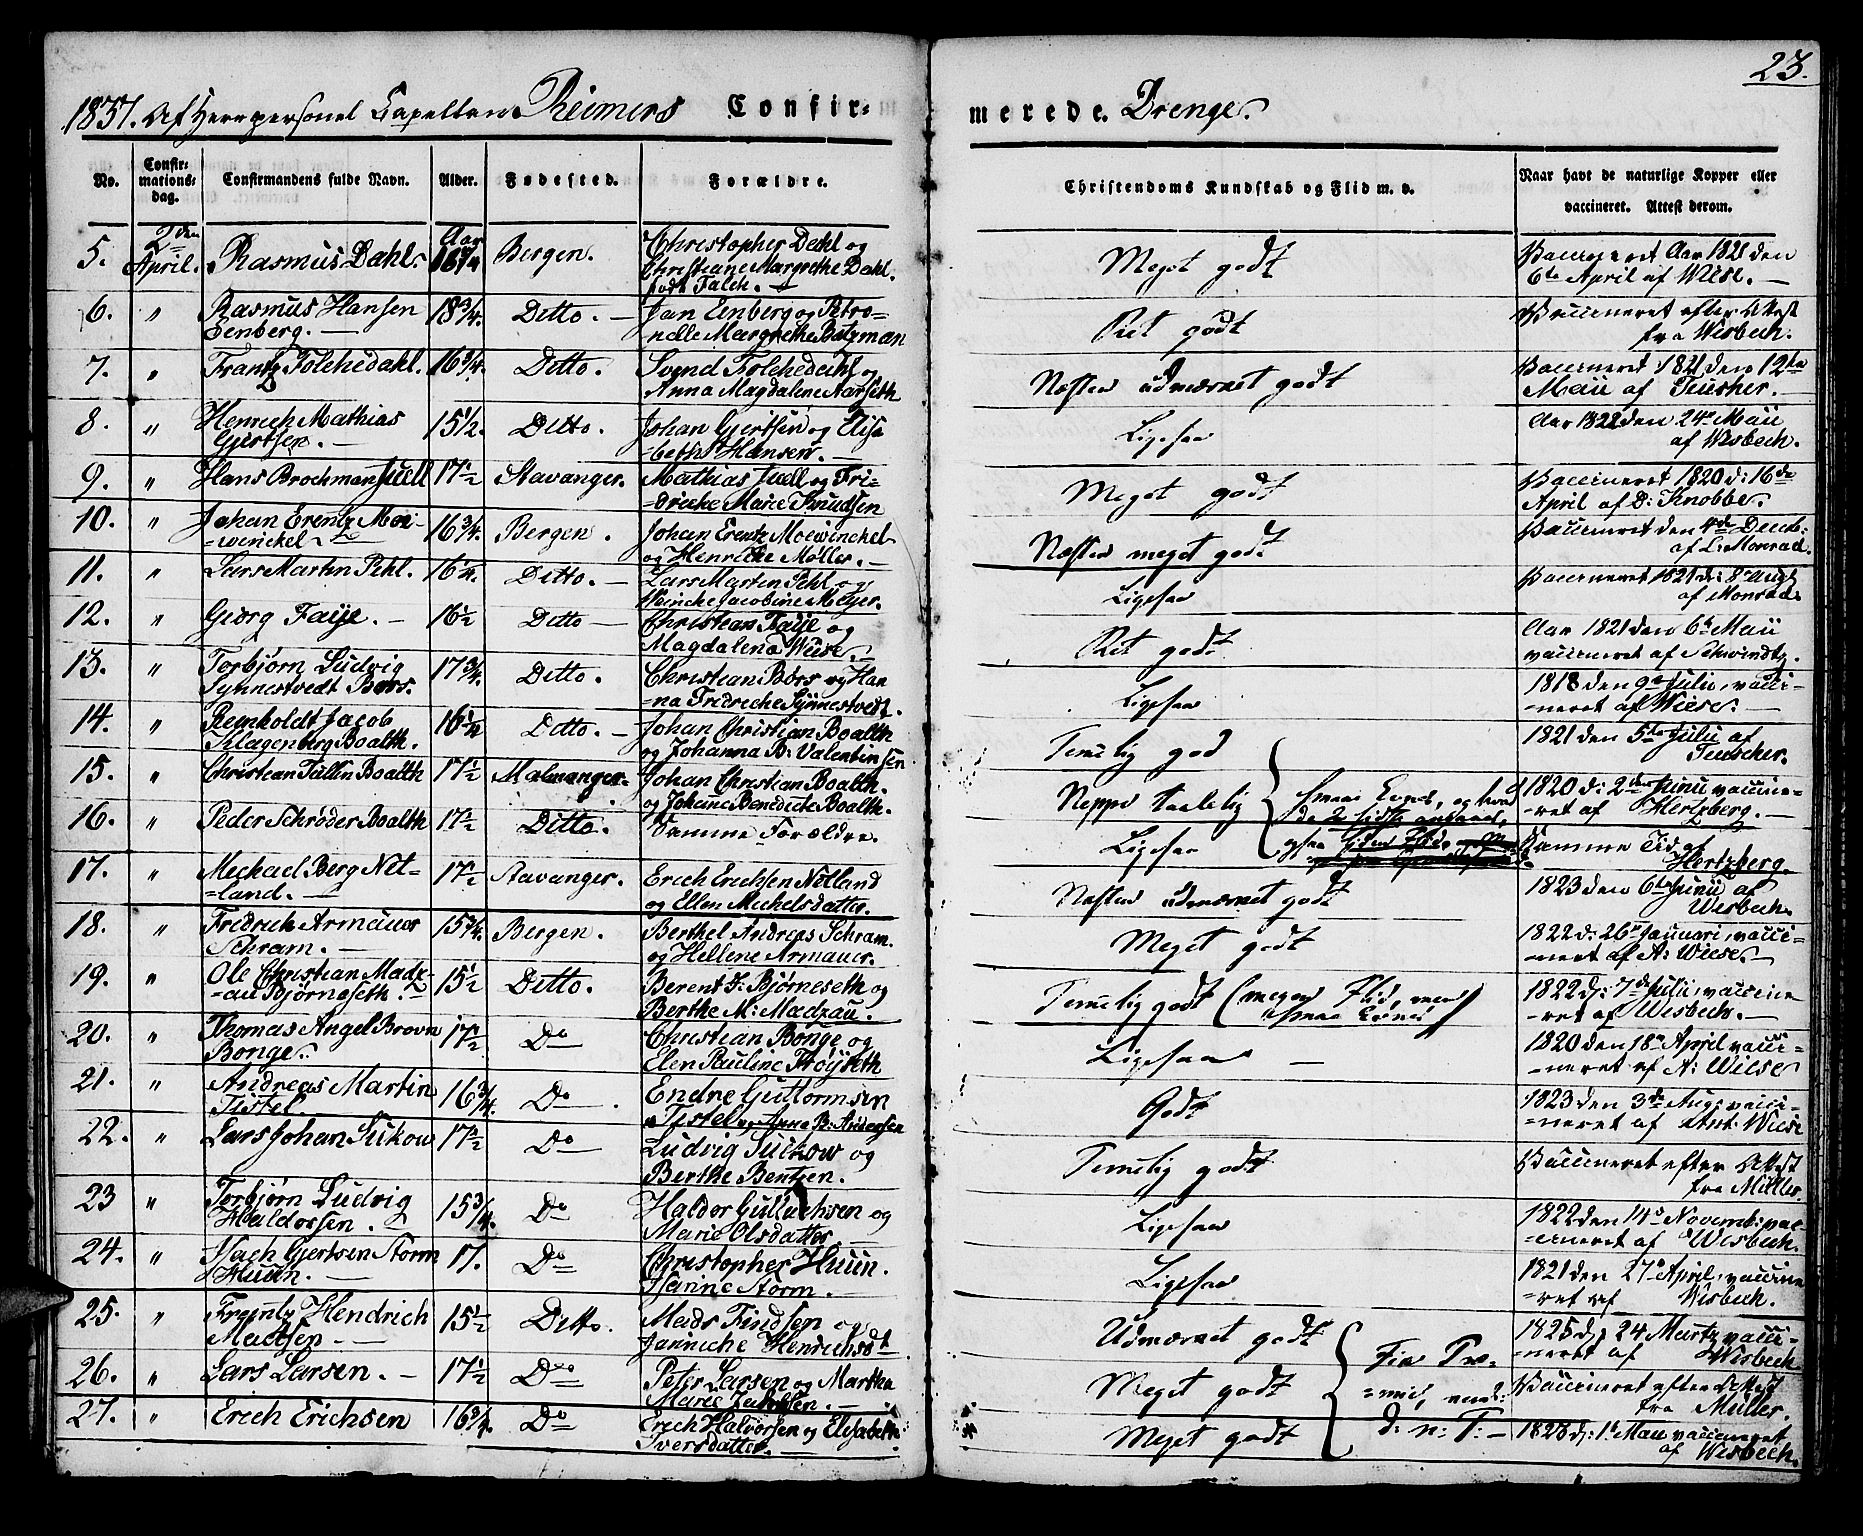 23.
1837. Af Herr personel Capellan Reimers Confir=
merede Drenge.
No. Confir= mations= dag. Confirmandens fulde Navn. Alder. Fødested. Forældre.
Christendoms Kundskab og Flid m. v.
Naar havt de naturlige Kopper eller vaccineret. Attest derom.
5. 2den April. Rasmus Dahl. Aar 16 Bergen. Christopher Dahl og
Christiane Margrethe Dahl.
født Falch. —
Meget godt
Vaccineret Aar 1821 den
6te April af Wiese. —
6. " Rasmus Hansen 18 3/4. Ditto. — Jan Eenberg og Petro=
Eenberg. — nelle Margrethe Botzman
Ret godt
Vaccineret efter Attest
fra Wisbech.
7. " Frantz Folchedahl. 16 3/4. Ditto. Svend Folchedahl og
Anna Magdalene Aarseth
Næsten udmærket godt
Vaccineret 1821 den 12te
Maii af Teuscher.
8. " Henrich Mathias 15 1/2. Ditto. Johan Gjertsen og Elisa
Gjertsen. — =beth Hansen. —
Ligesaa
Aar 1822 den 24de Maii
af Wisbech.
9. " Hans Brochman Juell 17 1/2 Stavanger. Mathias Juell og Fri=
=dricke Marie Knudsen
Meget godt
Vaccineret 1820 d: 16de
April af D: Knobbe.
10. " Johan Erentz Mo 16 3/4. Bergen. Johan Erentz Mowinckel
=winckel og Henricke Møller. —
Næsten meget godt
Vaccineret den Decmb:
af L: Monrad.
11. " Lars Martin Pihl. 16 1/4. Ditto. — Lars Martin Pihl og
Wencke Jacobine Meyer.
Ligesaa
Vaccineret 1821 d: 8de Augt
af Monrad.
12. " Georg Faye. — 16 1/2 Ditto — Christian Faye og
Magdalena Wiese. —
Ret godt
Aar 1821 den 6te Maii
vaccineret af Schwindtz.
13. " Torbjørn Ludvig 17 3/4. Ditto. Christian Børs og Han
Synnestvedt Børs. =na Fredricke Synnestvedt.
Ligesaa
1818 den 9de Julii, vacci=
=neret af Wiese. —
14. " Reinholdt Jacob 16 1/2 Ditto. — Johan Christian Boalth
Klagenberg Boalth. og Johanna B: Valentinsen
Temelig god
1821 den 5te Julii af
Teuscher.
15. " Christian Tullin Boalth 17 1/2 Malmanger. Johan Christian Boalth.
og Johanne Benedicte Boalth.
Neppe taalelig
smaae Evner, og hvad
de 2 sidste
1820 d: 2den Junii vaccine=
ret af Hertzberg. —
16. " Peder Schrøder Boalth 17 1/2 Ditto. Samme Forældre.
Ligesaa
liden Flid,
Samme Tid af
Hertzberg.
17. " Michael Berg Net= 17 1/2 Stavanger. Erich Erichsen Netland
=land. — og Ellen Michelsdatter.
Næsten udmærket godt
1823 den 6te Junii af
Wisbech.
18. " Fredrich Armauer 15 3/4. Bergen. Berthel Andreas Schram.
Schram. — og Hellene Armauer.
Meget godt
1822 d: 26de Januari, vacci=
neret af A: Wiese. —
19. " Ole Christian Madz= 15 1/2 Ditto. Berent J: Bjørneseth og
=au Bjørneseth. — Berthe M: Madzau.
Temelig godt (megen Flid, men
smaae Evner)
1822 d: 7de Julii, vaccine=
=ret af Wisbech. —
20. " Thomas Angel Brovn 17 1/2 Do Christian Bonge og
Bonge. Elen Pauline Frøyseth
Ligesaa —
1820 den 18de April vacci=
=neret af A: Wiese
21. " Andreas Martin 16 3/4. Do. Endre Guttormsen
Tistel. Tistel og Anna B: Andersen
Godt
1823 den 3de Aug vacci=
=neret af Ant: Wiese
22. " Lars Johan Suckow 17 1/2 Do Ludvig Suckow og
Berthe Bentzen.
Temelig godt
Vaccineret efter Attest
fra Müller.
23 " Torbjørn Ludvig 15 3/4. Do Haldor Gulluchsen og
Haldorsen. — Marie Olsdatter. —
Ligesaa
1822 den 14de Novemb: vac=
=cineret af Wisbech.
24. " Nach Gjertsen Storm 17. Do Christopher Huun.
Huun. — Hanne Storm. —
Ligesaa
1821 den 27de April, vaccine
=ret af Wisbech.
25. " Frantz Hendrich 15 1/2 Ditto. Mads Findsen og
Madsen. — Janniche Henrichsdt
Udmærket godt
Fik Præ=
1825 d: 24 Martz vacci=
=neret af Wisbech
26. " Lars Larsen. — 17 1/2 Do Peter Larsen og Martha
Marie Jacobsen. —
Meget godt
=mie,
Vaccineret efter Attest
fra Müller.
27. " Erich Erichsen 16 3/4 Do Erich Halvorsen og Elisabeth
Iversdatter.
Meget godt
d: n: T: —
1823 d: 1te Maii vaccineret
af Wisbech.